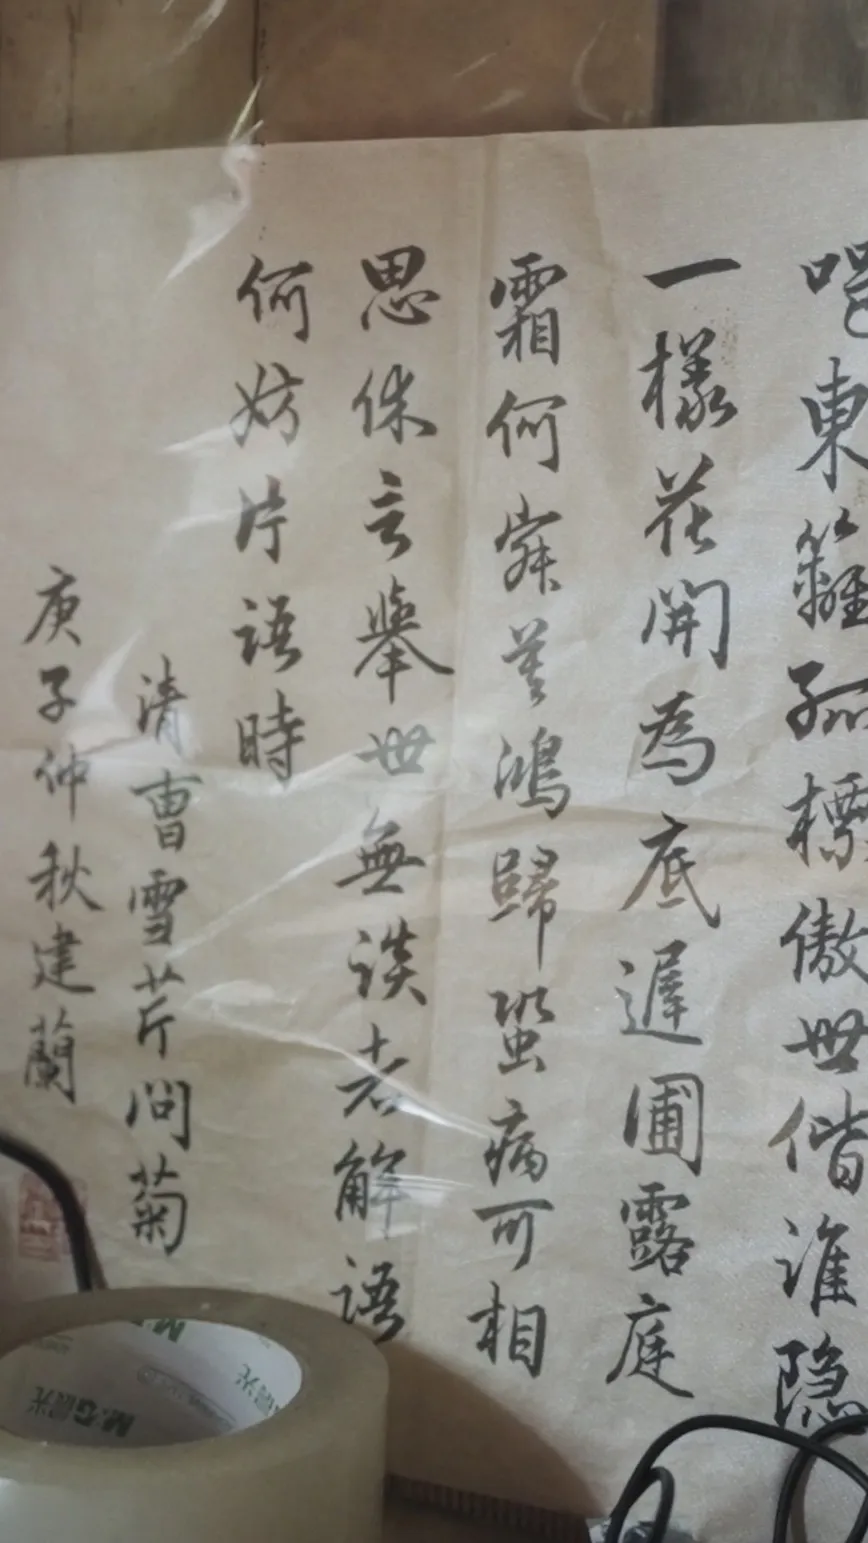 喈東籬孤標傲世偕誰隐
一樣花開為底遲圃露庭
霜何寂莫鴻歸蛩病可相
思休言舉世無談者解語
何妨片語時
清曹雪芹問菊
庚子仲秋建蘭
M&G晨光